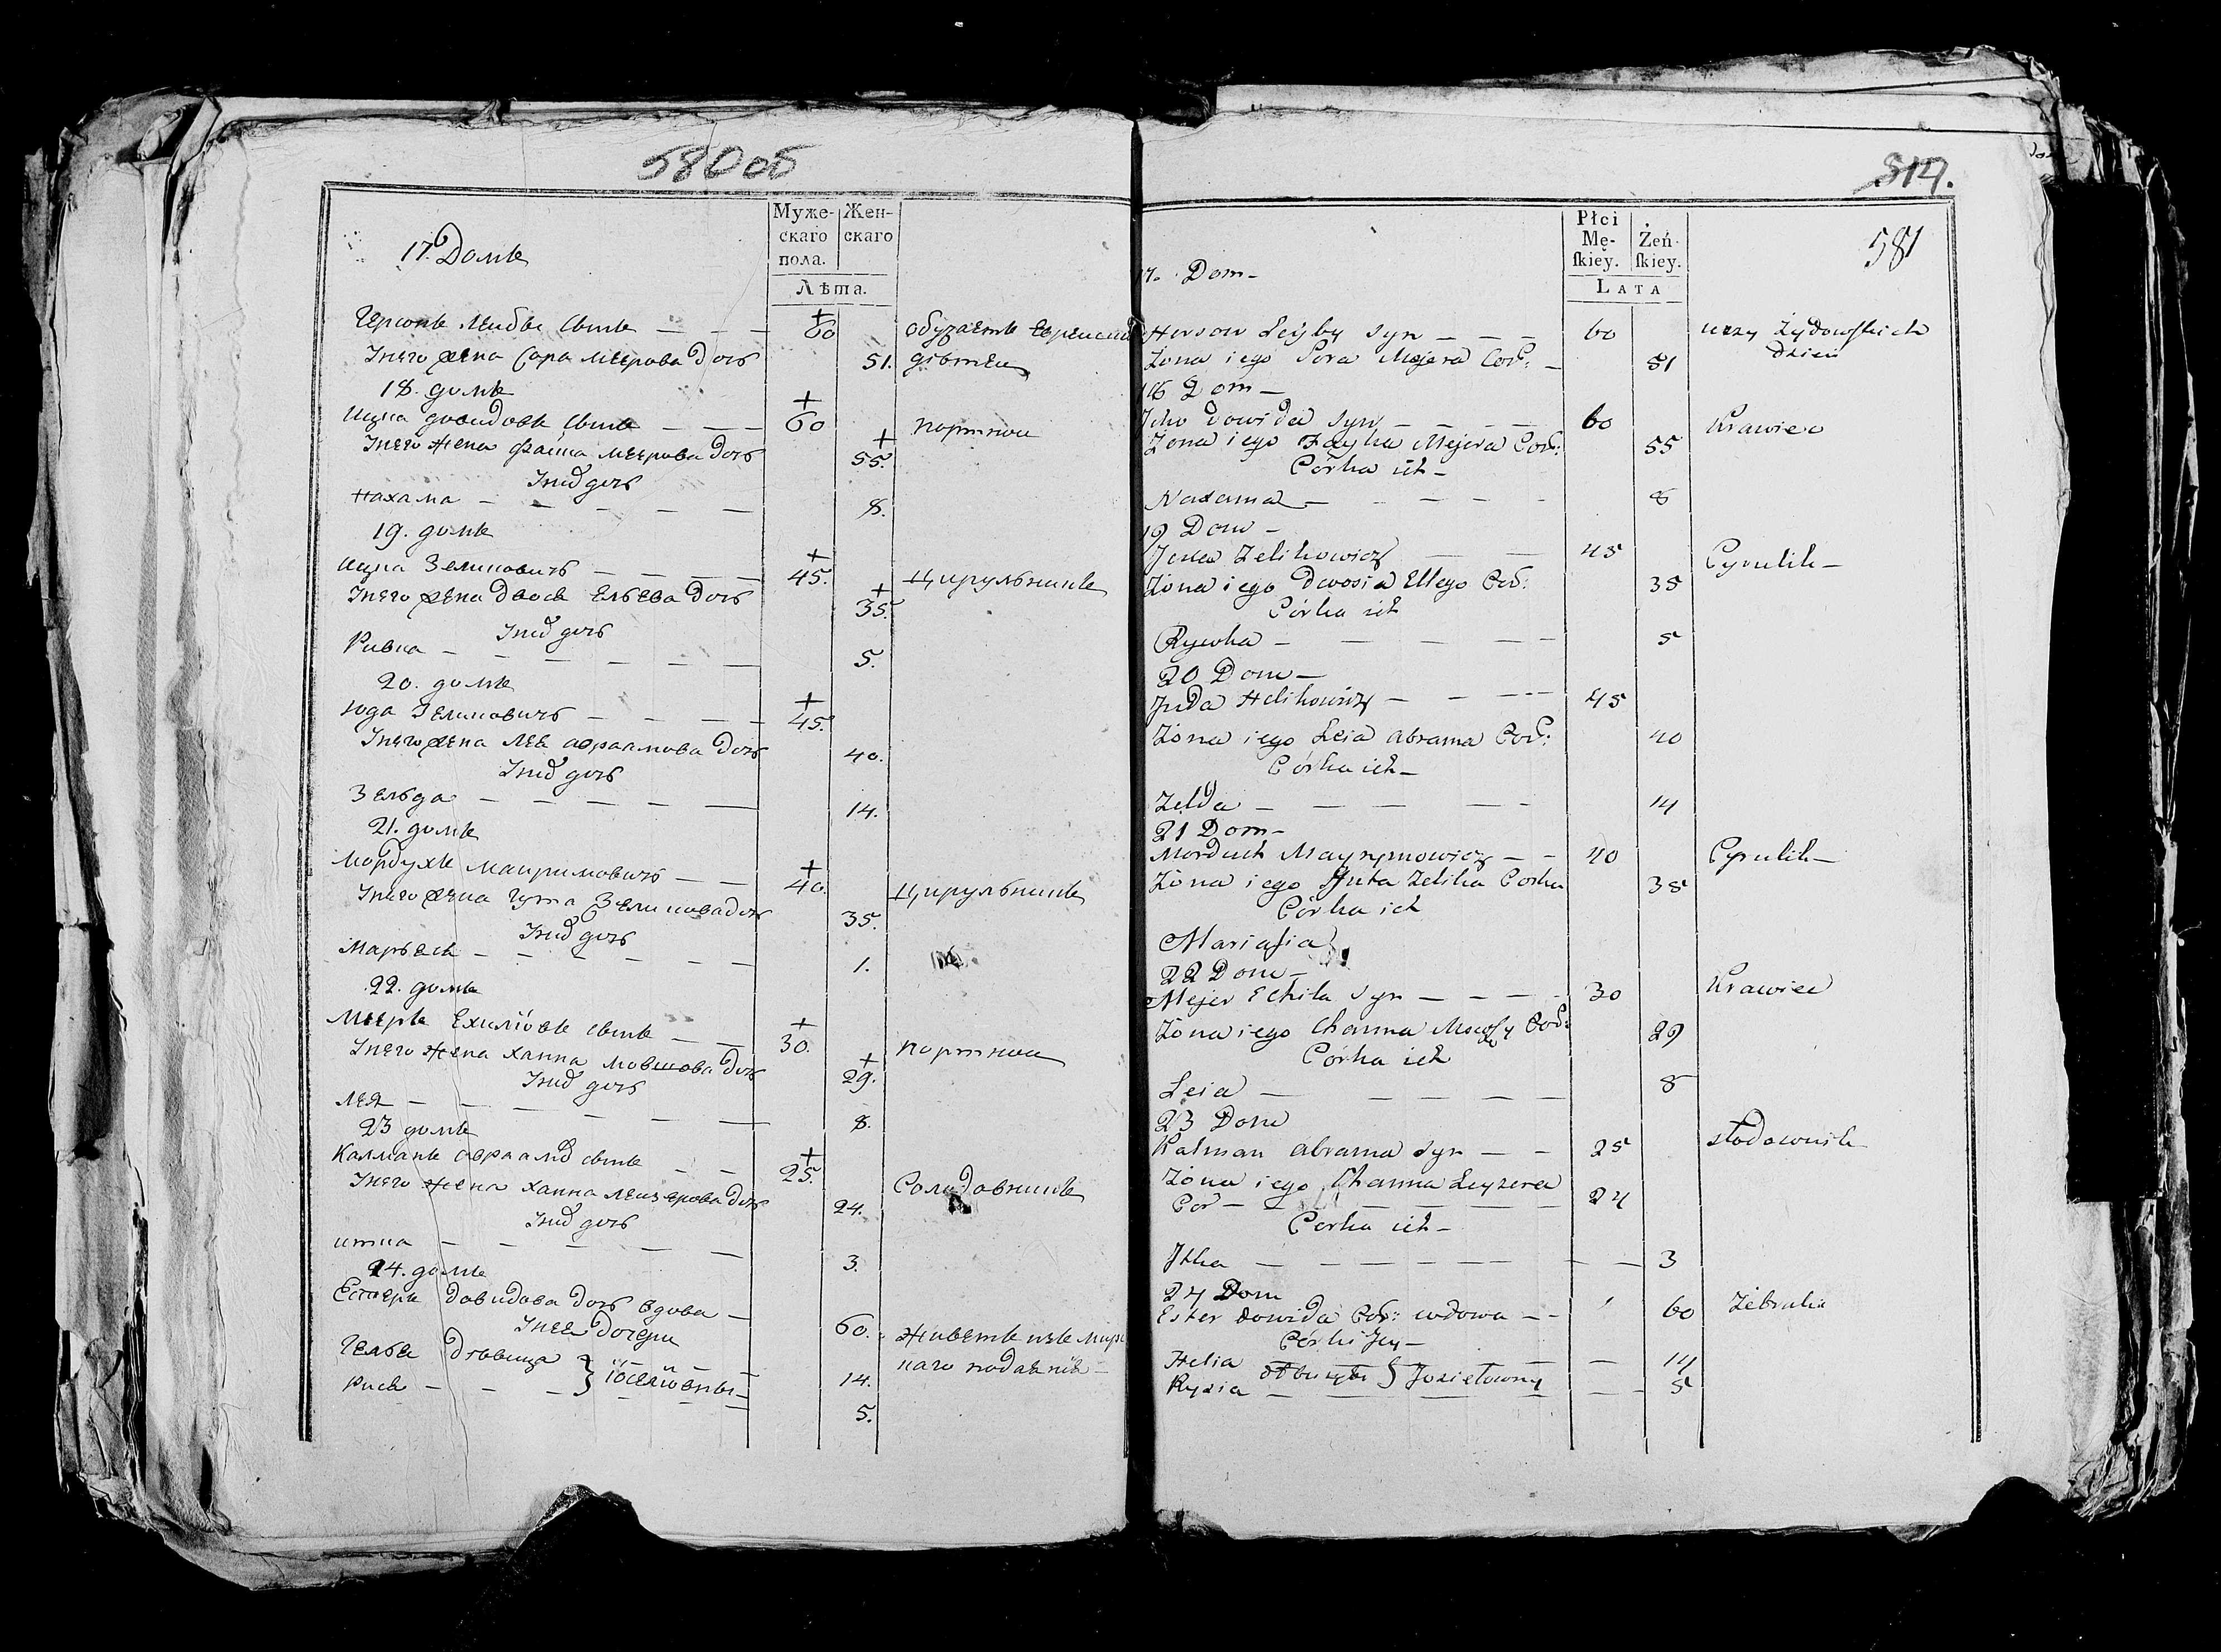 580об
Муже-
скаго
пола.
Жен-
скаго
Лѣта.
17. Домъ
Герсонъ Лейбы сынъ — — — 60 обучаетъ Еврейски
У него жена Сора Меерова дочь 51. дѣтей
18. домъ
Ицка Довидовъ сынъ — — — 60 портной
У него жена Файга Меерова дочь 55.
У них дочь
Нахама — — — — — 8.
19. домъ
Ицка Зеликовичь — — — — 45. Цирульникъ
У него жена Двося Ельева дочь 35.
У них дочь
Ривка — — — — — — 5.
20. домъ
Юда Зеликовичь — — — — 45.
У него жена Лея Абрамова дочь 40.
У них дочь
Зельда — — — — — 14.
21. домъ
Мордухъ Маиримовичь — — 40. Цирульникъ
У него жена Гута Зеликова дочь 35.
У них дочь
Марьяся — — — — — — 1.
22. домъ
Мееръ Ехиліовъ сынъ — — 30. портной
У него жена Ханна Мовшова дочь 29.
У них дочь
Лея — — — — — — 8.
23 домъ
Калманъ Абрамов сынъ — — 25. Солодовникъ
У него жена Ханна Лейзерова дочь 24.
У них дочь
Итка — — — — — — 3.
24. домъ
Естеръ Давидова дочь вдова — 60. живетъ изъ мирс
У нее дочери
наго подаянія —
Геля девица } Іоселіовны — 14.
Рися — — — 5.
514.
581
Płci
Mę-
skiey.
Żeń-
skiey.
LATA
17. Dom —
Herson Leyby syn — — — 60 uczy Żydowskich
Żona iego Sora Mejera Cor: — 51 dzieci
18 Dom —
Icko Dowida syn — — — — 60 Krawiec
Żona iego Fayha Mejera Cor: 55
Córka ich —
Nachama — — — — — 8
19 Dom —
Icka Zelikowicz — — 45 Cyrulik —
Żona iego Dwosia Elego Cor: 35
Córka ich
Rywka — — — — — 5
20 Dom —
Juda Helikowicz — — — 45
Żona iego Leia Abrama Cor: 40
Córka ich —
Zelda — — — — — 14
21 Dom —
Morduch Mayrymowicz — — 40 Cyrulik —
Żona iego Guta Zelika Corka 35
Córka ich
Mariasia 1
22 Dom —
Mejer Echila syn — — — — 30 Krawiec
Żona iego Channa Mowszy Cor: 29
Córka ich
Leia — — — — — 8
23 Dom
Kalman Abrama syn — — 25 słodownik
Żona iego Channa Leyzera
Cor — — — — — — 24
Corka ich —
Itka — — — — — — — — 3
24 Dom
Ester Dowida Cor: wdowa — — 60 Żebrak
Córki Jey —
Helia — — — 14
} Josielowny
Rysia — — — 5